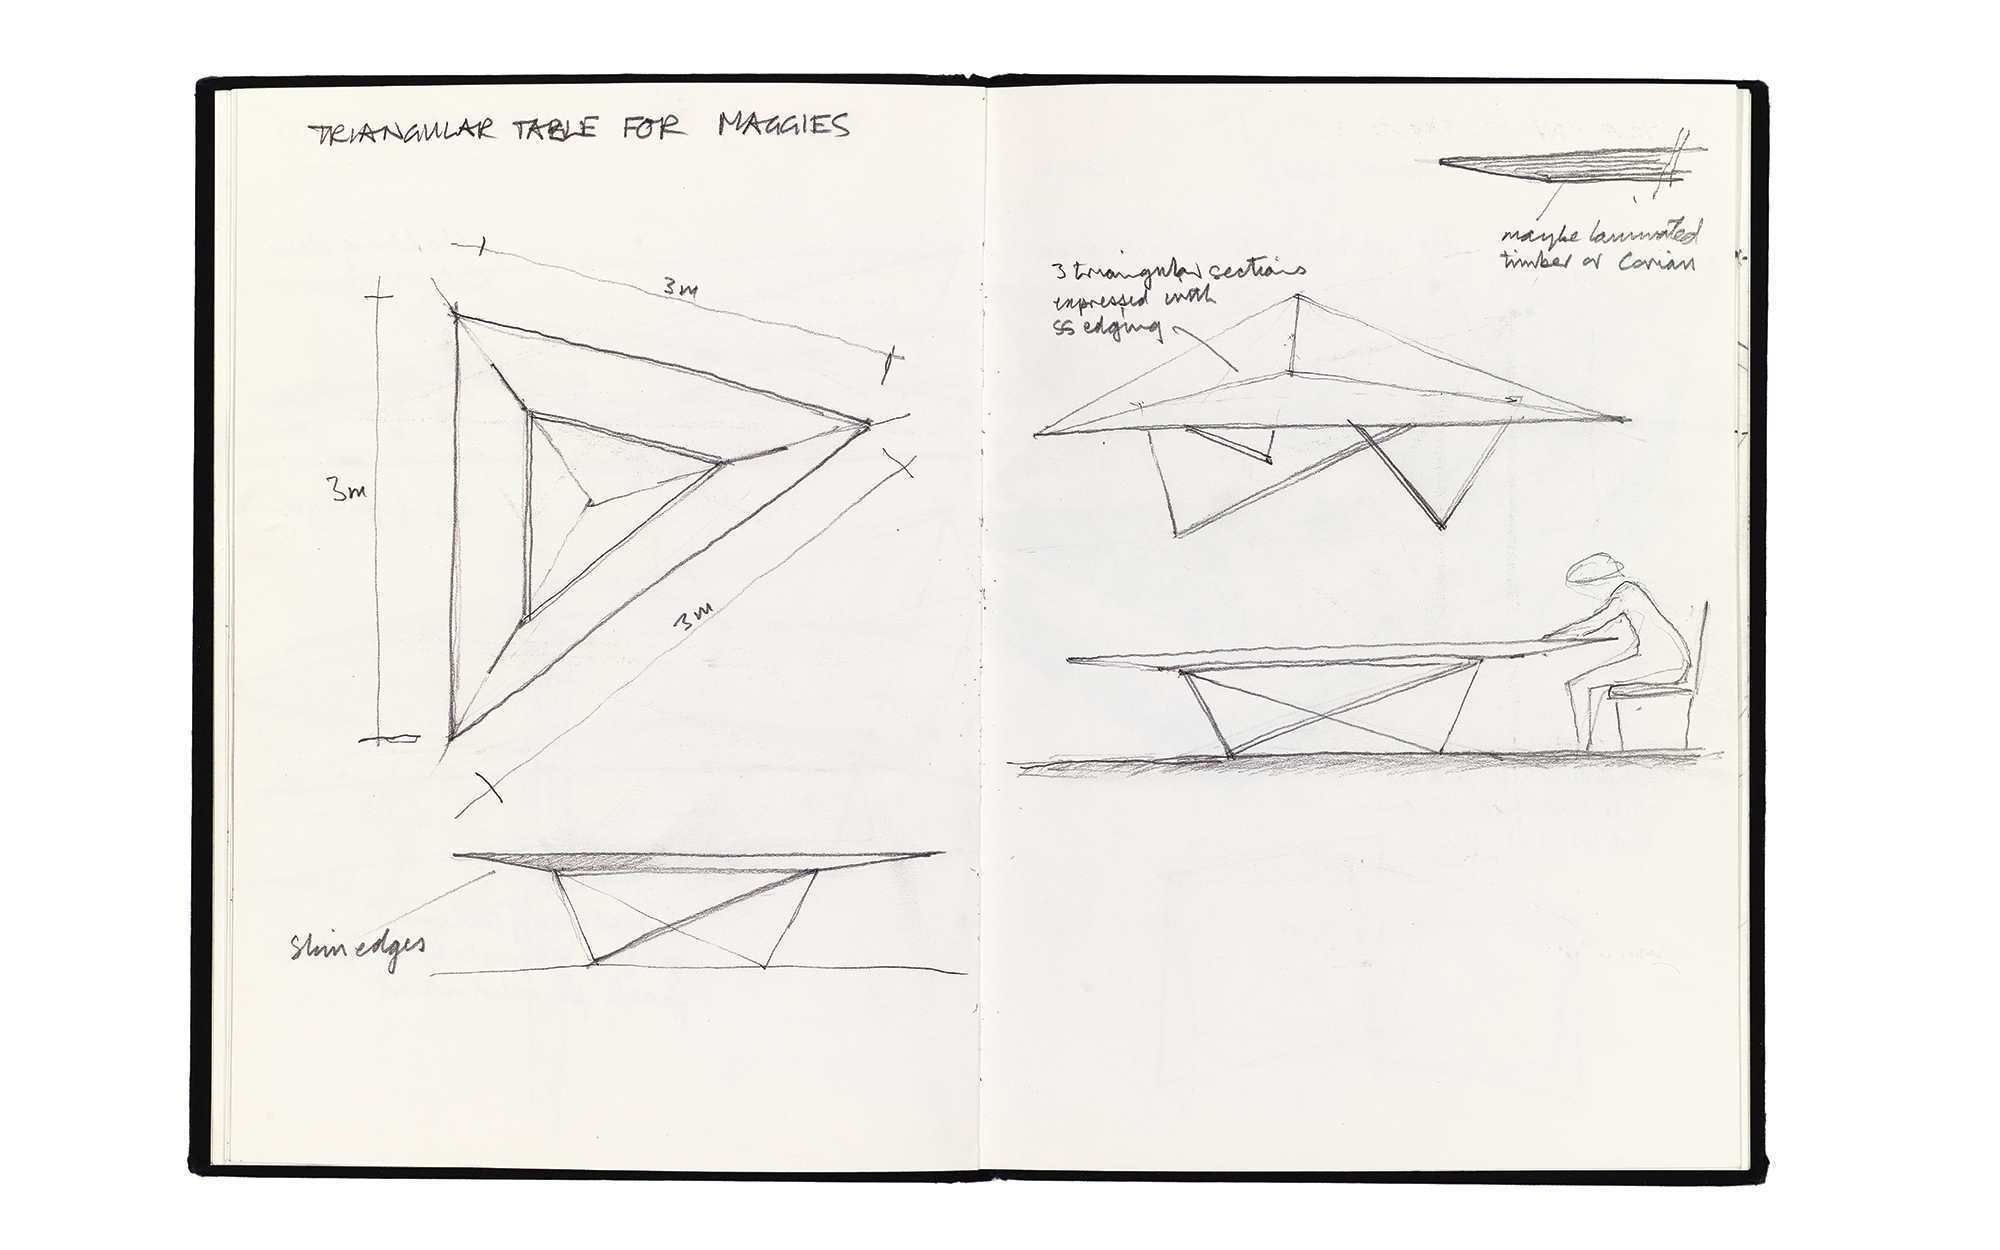 TRIANGULAR TABLE FOR MAGGIES
3m
3m
3m
Slim edges
maybe laminated
timber or Corian
3 triangular sections
expressed with
SS edging